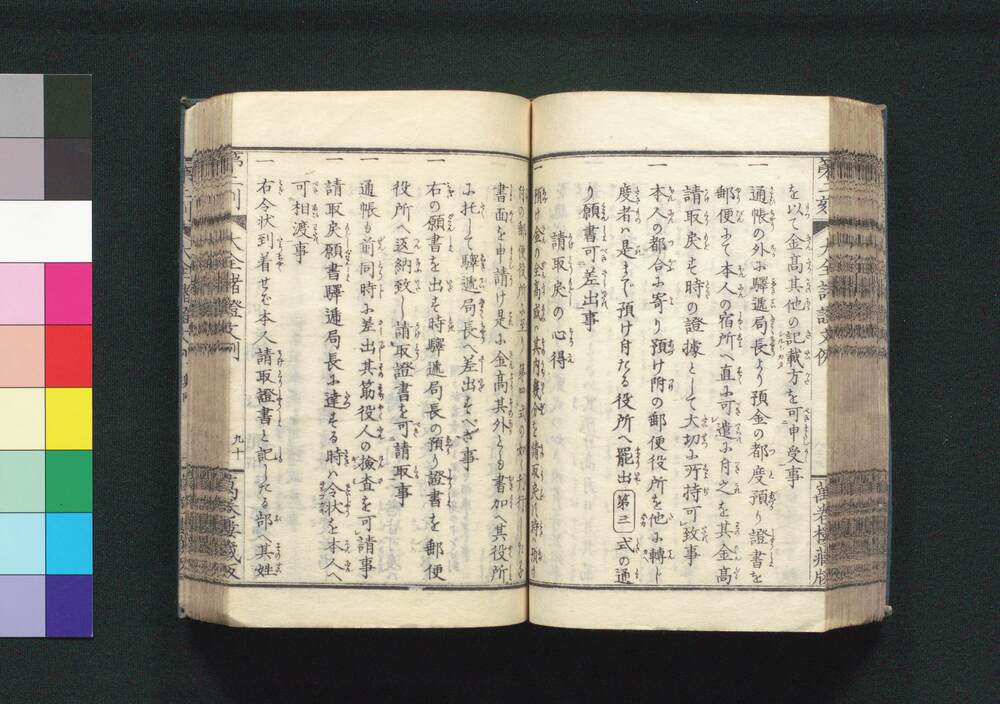 を以て金高其他の記載方を可申受事
一 通帳の外ニ驛遞局長より預金の都度預り證書を
郵便ニて本人の宿所へ直ニ可遣ニ付之を其金高
請取戻も時の證據として大切ニ所持可致事
一 本人の都合ニ寄り預け附の郵便役所を他ニ轉し
度者ハ是まで預け付たる役所へ罷出第三式の通
り願書可差出事
請取戻の心得
一 預け金の全高或ハ其内幾分を請取戻
書面を申請け是ニ金高其外とも書加へ其役所
ニ托して驛遞局長へ差出すべき事
一 右の願書を出も時驛遞局長の預り證書を郵便
役所へ返納致し請取證書を可請取事
一 通帳も前同時ニ差出其筋役人の撿査を可請事
一 請取戻願書驛遞局長ニ達する時ハ令状を本人へ
可相渡事
一 右令状到着せバ本人請取證書と記したる部へ其姓
九十
萬卷樓藏版